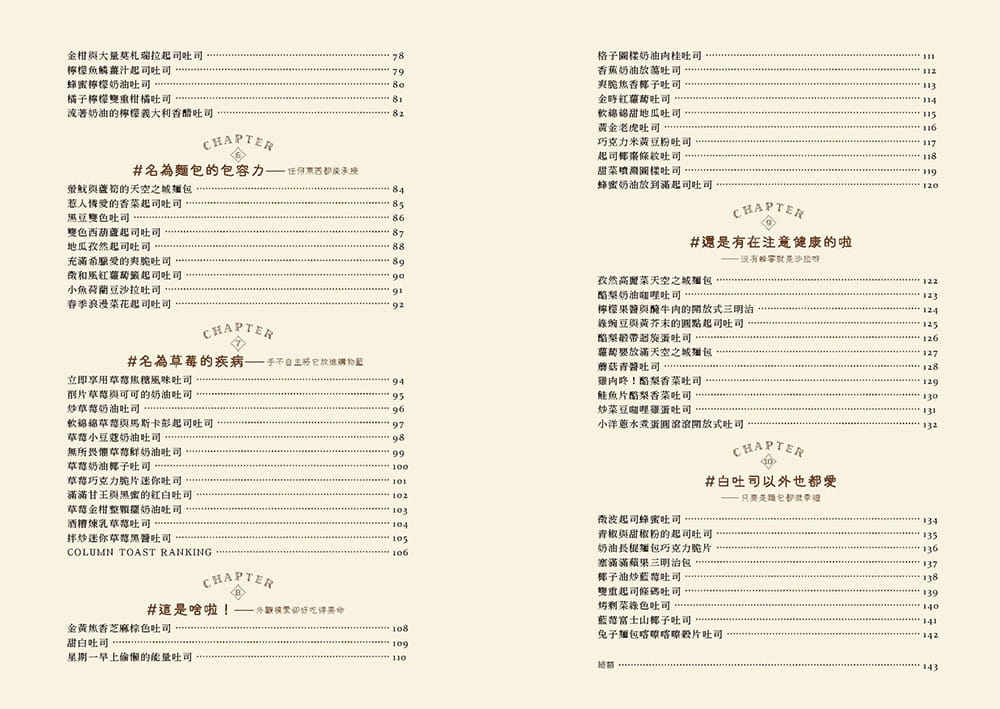 金柑與大量莫札瑞拉起司吐司 78
檸檬魚鱗薑汁起司吐司 79
蜂蜜檸檬奶油吐司 80
橘子檸檬雙重柑橘吐司 81
流著奶油的檸檬義大利香醋吐司 82
CHAPTER
6
#名為麵包的包容力——任何東西都能承接
螢魷與蘆筍的天空之城麵包 84
惹人憐愛的香菜起司吐司 85
黑豆雙色吐司 86
雙色西葫蘆起司吐司 87
地瓜孜然起司吐司 88
充滿希臘愛的爽脆吐司 89
微和風紅蘿蔔籤起司吐司 90
小魚荷蘭豆沙拉吐司 91
春季浪漫菜花起司吐司 92
CHAPTER
7
#名為草莓的疾病——手不自主將它放進購物籃
立即享用草莓焦糖風味吐司 94
削片草莓與可可的奶油吐司 95
炒草莓奶油吐司 96
軟綿綿草莓與馬斯卡彭起司吐司 97
草莓小豆蔻奶油吐司 98
無所畏懼草莓鮮奶油吐司 99
草莓奶油椰子吐司 100
草莓巧克力脆片迷你吐司 101
滿滿甘王與黑蜜的紅白吐司 102
草莓金柑整顆擺奶油吐司 103
酒糟煉乳草莓吐司 104
拌炒迷你草莓黑醬吐司 105
COLUMN TOAST RANKING 106
CHAPTER
8
#這是啥啦！——外觀樸素卻好吃得要命
金黃焦香芝麻棕色吐司 108
甜白吐司 109
星期一早上偷懶的能量吐司 110
格子圖樣奶油肉桂吐司 111
香蕉奶油放蕩吐司 112
爽脆焦香椰子吐司 113
金時紅蘿蔔吐司 114
軟綿綿甜地瓜吐司 115
黃金老虎吐司 116
巧克力米黃豆粉吐司 117
起司椰棗條紋吐司 118
甜菜噴濺圖樣吐司 119
蜂蜜奶油放到滿起司吐司 120
CHAPTER
9
#還是有在注意健康的啦
——沒有蜂蜜就是沙拉呀
孜然高麗菜天空之城麵包 122
酪梨奶油咖哩吐司 123
檸檬果醬與醃牛肉的開放式三明治 124
綠豌豆與黃芥末的圓點起司吐司 125
酪梨緞帶迴旋蛋吐司 126
蘿蔔嬰放滿天空之城麵包 127
蘑菇青醬吐司 128
雞肉咚！酪梨香菜吐司 129
鮭魚片酪梨香菜吐司 130
炒菜豆咖哩雞蛋吐司 131
小洋蔥水煮蛋圓滾滾開放式吐司 132
CHAPTER
10
#白吐司以外也都愛
——只要是麵包都很幸福
微波起司蜂蜜吐司 134
青椒與甜椒粉的起司吐司 135
奶油長棍麵包巧克力脆片 136
塞滿滿蘋果三明治包 137
椰子油炒藍莓吐司 138
雙重起司條碼吐司 139
烤剩菜綠色吐司 140
藍莓富士山椰子吐司 141
兔子麵包喀嚓喀嚓穀片吐司 142
結語 143